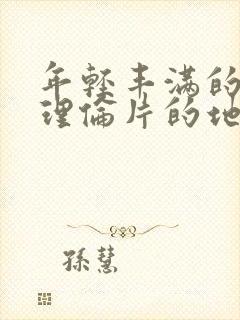 年轻丰满的
理倫片的地
孫慧